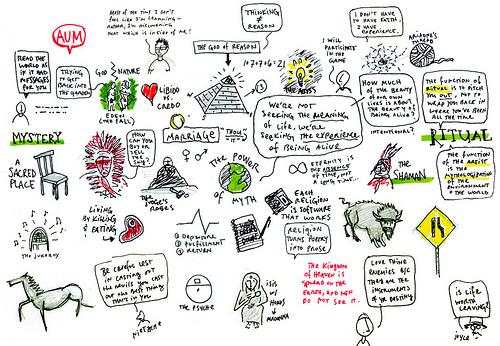 AUM
MOST OF THE TIME I DON'T
FEEL LIKE I'M LEARNING -
RATHER, I'M DISCOVERING
THAT WHICH IS INSIDE OF ME!
THINKING
≠
REASON
I DON'T HAVE
TO HAVE FAITH I
HAVE EXPERIENCE.
ARIADNE'S
THREAD
THE GOD OF REASON
READ THE
WORLD AS
IF IT HAD
MESSAGES
FOR YOU
TRYING
TO GET
BACK INTO
THE GARDEN
GOD
NATURE
EDEN
(THE FALL)
LIBIDO
VS.
CREDO
1+7+7+6=21
THE ABYSS
I WILL
PARTICIPATE
IN THE
GAME
HOW MUCH
OF THE BEAUTY
OF OUR OWN
LIVES IS ABOUT
THE BEAUTY OF
BEING ALIVE?
INTENTIONAL?
THE FUNCTION OF
RITUAL IS TO PITCH
YOU OUT, NOT TO
WRAP YOU BACK IN
WHERE YOU'VE BEEN
ALL THE TIME.
WE'RE NOT
SEEKING THE MEANING
OF LIFE, WE'RE
SEEKING THE EXPERIENCE
OF BEING ALIVE
MYSTERY
RITUAL
A
SACRED
PLACE
HOW CAN
YOU BUY
OR SELL
THE
SKY?
MARRIAGE
"THOU"
"IT"
♀ ♂
THE POWER
OF MYTH
ETERNITY IS
THE ABSENCE
OF TIME, NOT
A LONG TIME...
THE
SHAMAN
THE FUNCTION
OF THE ARTIST
IS THE
MYTHOLOGIZATION
OF THE
ENVIRONMENT
& THE WORLD
THE JUKEBOX
LIVING
BY KILLING
& EATING
THE JUDGE'S
ROBES
① DEPARTURE
② FULFILLMENT
③ RETURN
EACH
RELIGION
IS SOFTWARE
THAT WORKS
RELIGION
TURNS POETRY
INTO PROSE
BE CAREFUL LEST
IN CASTING OUT
THE DEVILS YOU CAST
OUT THE BEST THING
THAT'S IN YOU
NIETZSCHE
THE PSYCHE
ISIS
HORUS
MADONNA
THE KINGDOM
OF HEAVEN IS
SPREAD ON THE
EARTH, AND MEN
DO NOT SEE IT.
LOVE THINE
ENEMIES B/C
THEY ARE THE
INSTRUMENTS
OF YR DESTINY
IS LIFE
WORTH
LEAVING?